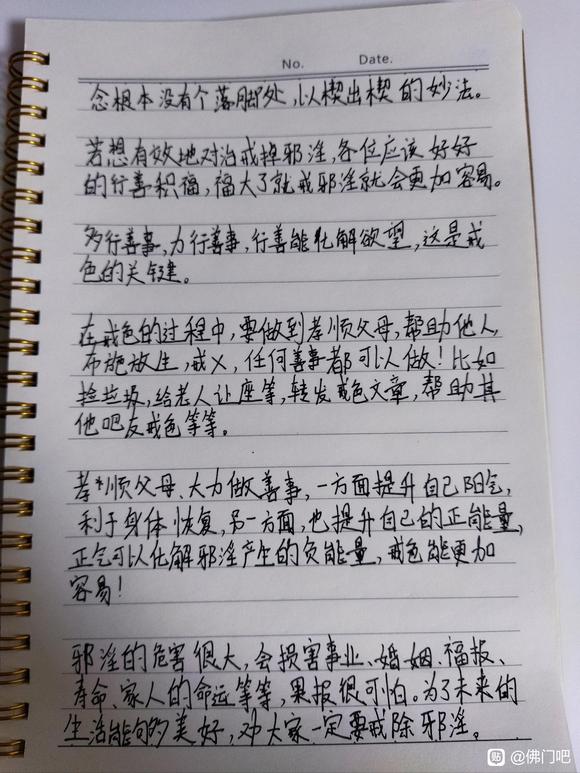 No. Date.
念根本没有个落脚处,以楔出楔的妙法。
若想有效地对治戒掉邪淫,各位应该好好
的行善积福,福大了就戒邪淫就会更加容易。
多行善事,力行善事,行善能化解欲望,这是戒
色的关键。
在戒色的过程中,要做到孝顺父母,帮助他人,
布施放生,戒x,任何善事都可以做!比如
捡垃圾,给老人让座等,转发戒色文章,帮助其
他吧友戒色等等。
孝*顺父母、大力做善事,一方面提升自己阳气,
利于身体恢复,另一方面,也提升自己的正能量,
正气可以化解邪淫产生的负能量,戒色能更加
容易!
邪淫的危害很大,会损害事业、婚姻、福报、
寿命、家人的命运等等,果报很可怕。为了未来的
生活能够美好,劝大家一定要戒除邪淫。
贴 @佛门吧